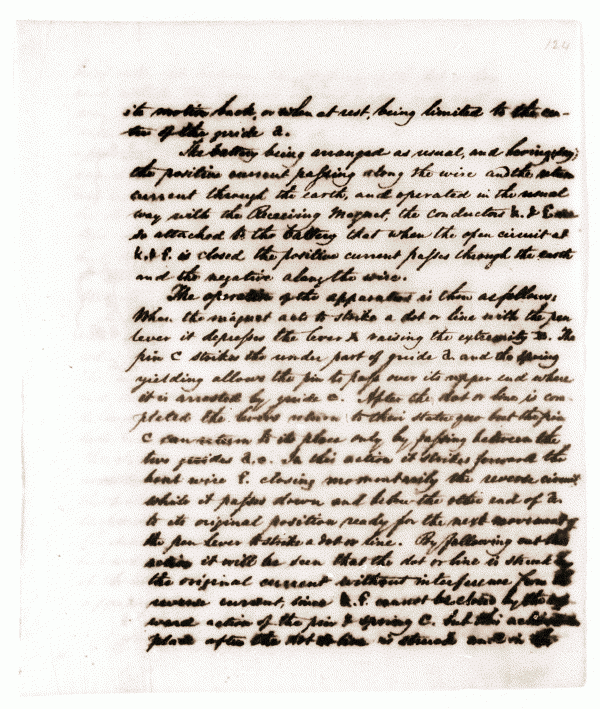 124
its motion back, or when at rest, being limited to the cen-
tre of the guide a.
The battery being arranged as usual, and having
the positive current passing along the wire and the return
current through the earth, and operated in the usual
way with the Receiving Magnet, the conductors &
so attached to the battery that when the open circuit at
& E. is closed the positive current passes through the earth
and the negative along the wire.
The operation of the apparatus is then as follows;
When the magnet acts to strike a dot or line with the pen
lever it depresses the lever raising the extremity The
pin C strikes the under part of guide a and the spring
yielding allows the pin to pass over its upper end where
it is arrested by guide c. After the dot or line is com-
pleted the levers return to their status quo but the pin
C can return to its place only by passing between the
two guides a. c. In this action it strikes forward the
bent wire E. closing momentarily the reverse circuit
while it passes down and below the other end of a
to its original position ready for the next movement of
the pen lever to strike a dot or line. By following out this
action it will be seen that the dot or line is struck by
the original current without interference from the
reverse current, since E. cannot be closed by the up
ward action of the pin & spring C. but this action
place after the dot or line is struck and in the